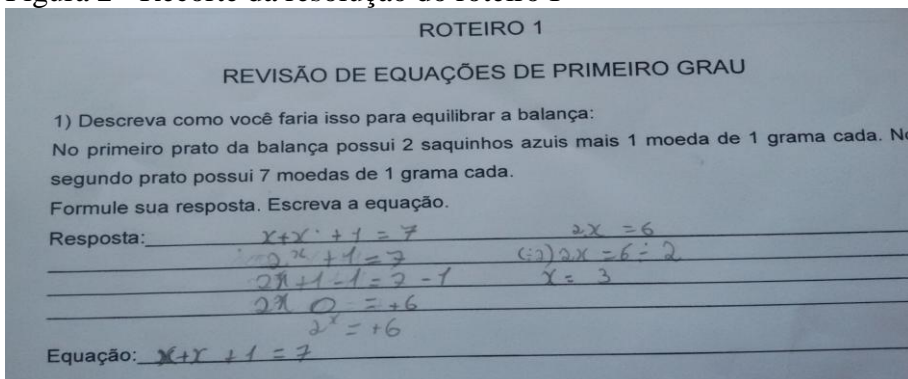 Figura 2 - Recorte da resolução do roteiro 1
ROTEIRO 1
REVISÃO DE EQUAÇÕES DE PRIMEIRO GRAU
1) Descreva como você faria isso para equilibrar a balança:
No primeiro prato da balança possui 2 saquinhos azuis mais 1 moeda de 1 grama cada. No
segundo prato possui 7 moedas de 1 grama cada.
Formule sua resposta. Escreva a equação.
Resposta: x+x + 1 = 7
2x + 1 = 7
2x + 1 - 1 = 7 - 1
2x 0 = +6
2x = +6
2x = 6
(÷2) 2x = 6 ÷ 2
x = 3
Equação: x+x + 1 = 7